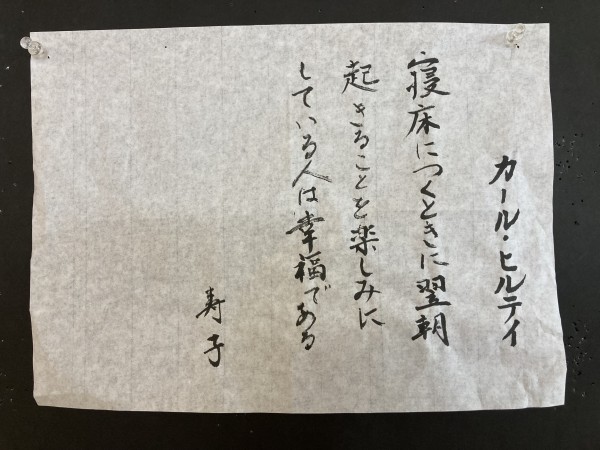 カール・ヒルティ
寝床につくときに翌朝
起きることを楽しみに
している人は幸福である
寿子